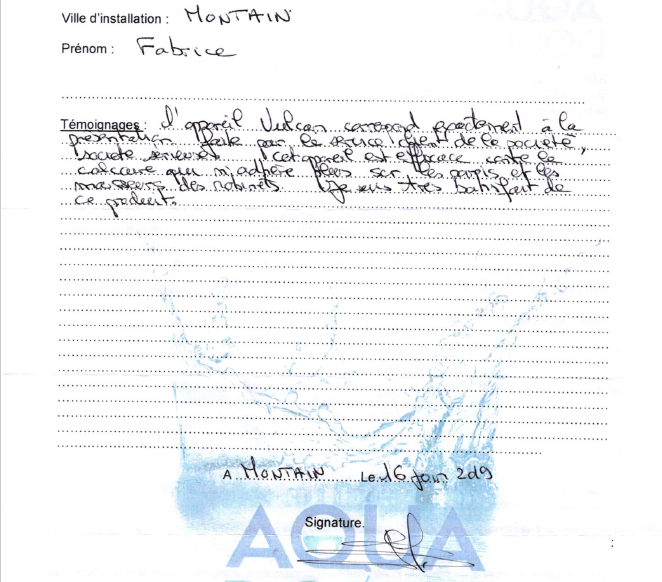 Ville d'installation : MONTAIN
Prénom : Fabrice
Témoignages : L'appareil Vulcan correspond exactement à la
présentation faite par le service client de la société,
société sérieuse. cet appareil est efficace contre le
calcaire qui n'adhère plus sur les parois et les
mousseurs des robinets. Je suis très satisfait de
ce produit.
A MONTAIN Le 16 juin 2019
Signature.
AQUA